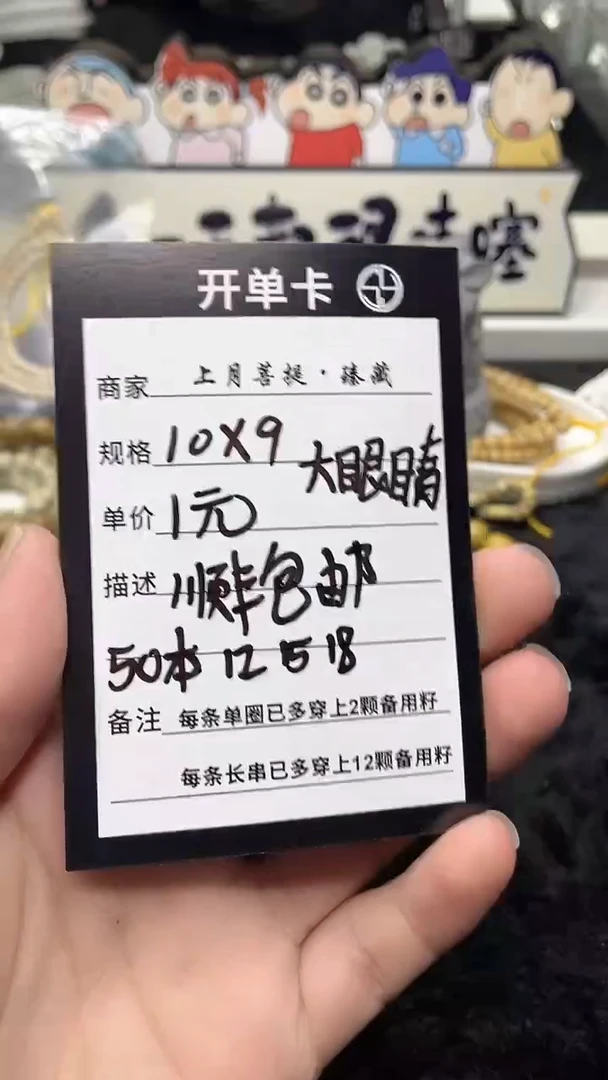 开单卡
商家 上月菩提·臻藏
规格 10X9 大眼睛
单价 1元
描述 顺丰包邮
50本 12 15 18
备注 每条单圈已多穿上2颗备用籽
每条长串已多穿上12颗备用籽